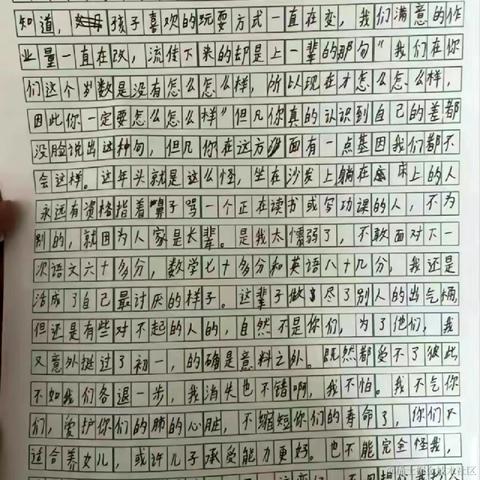 知道，孩子喜欢的玩耍方式一直在变，我们满意的作
业量一直在改，流传下来的却是上一辈的那句"我们在你
们这个岁数是没有怎么怎么样，所以现在才怎么怎么样，
因此你一定要怎么怎么样"但凡你真的认识到自己的差都
没脸说出这种句，但凡你在这方面有一点基因我们都不
会这样。这年头就是这么怪，坐在沙发上躺在床上的人
永远有资格指着鼻子骂一个正在读书或写功课的人，不为
别的，就因为人家是长辈。是我太懦弱了，不敢面对下一
次语文六十多分，数学七十多分和英语八十几分，我还是
活成了自己最讨厌的样子。这辈子做尽了别人的出气桶，
但还是有些对不起的人的，自然不是你们，为了他们，我
又意外挺过了初一，的确是意料之外。既然都受不了彼此
不如我们各退一步，我消失也不错啊，我不怕。我不气你
们，爱护你们的肺的心脏，不缩短你们的寿命了，你们不
适合养女儿，或许儿子承受能力更好。也不能完全怪我，